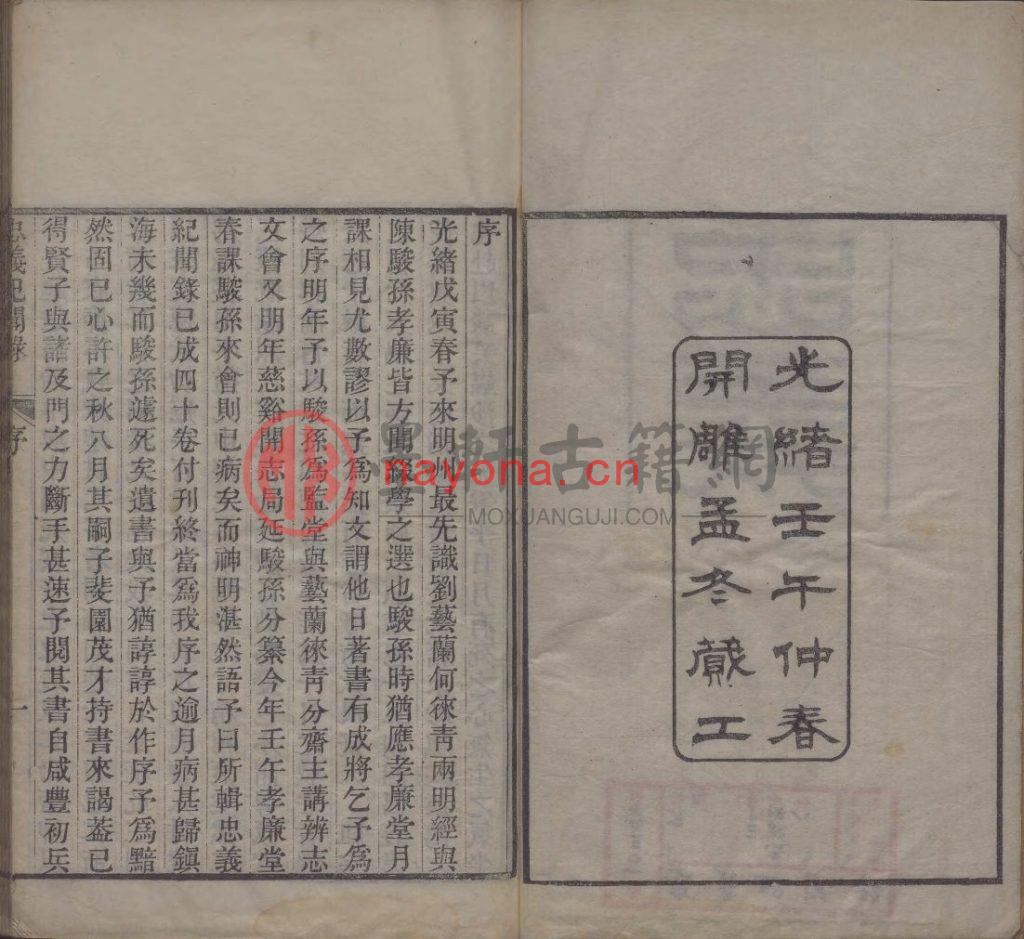 光緒壬午仲春
開雕孟冬蕆工
序
光緒戊寅春予來明州最先識劉藝蘭何徠靑兩明經與
陳駿孫孝廉皆方聞緜學之選也駿孫時猶應孝廉堂月
課相見尤數謬以予爲知文謂他日著書有成將乞予爲
之序明年予以駿孫爲監堂與藝蘭徠靑分齋主講辨志
文會又明年慈谿開志局延駿孫分纂今年壬午孝廉堂
春課駿孫來會則已病矣而神明湛然語予曰所輯忠義
紀聞錄已成四十卷付刊終當爲我序之逾月病甚歸鎭
海未幾而駿孫遽死矣遺書與予猶諄諄於作序予爲黯
然固已心許之秋八月其嗣子斐園茂才持書來謁葢已
得賢子與諸及門之力斷手甚速予閱其書自咸豐初兵
忠義紀聞錄 序 一
墨軒古籍網
nayona.cn
MOXUANGUJI.COM